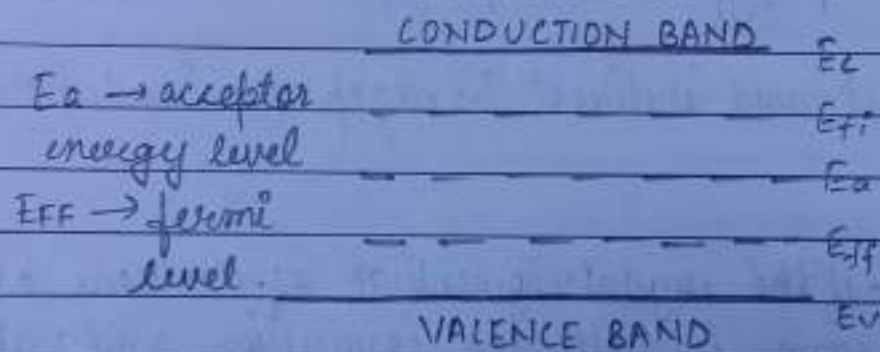 CONDUCTION BAND Ec
Ea → acceptor Efi
energy level Ea
EFF → fermi Eff
level Ev
VALENCE BAND